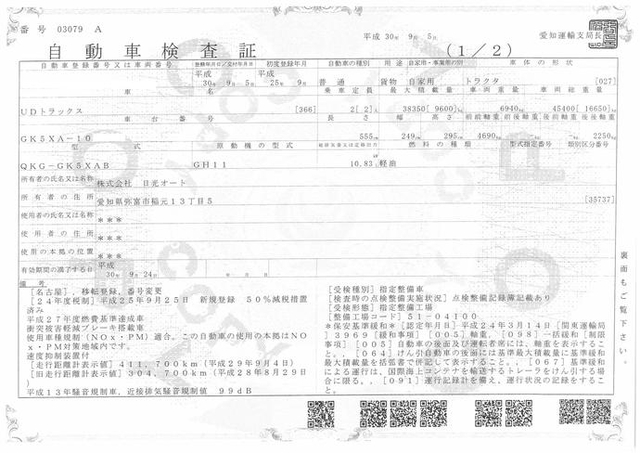 番号 03079 A
平成 30年 9月 5日
愛知運輸支局長
自動車検査証
(1/2)
自動車登録番号又は車両番号 登録年月日/交付年月日 初度登録年月 自動車の種別 用途 自家用・事業用の別 車体の形状
平成 30年 9月 5日 平成 25年 9月 普通 貨物 自家用 トラクタ [027]
車名 乗車定員 最大積載量 車両重量 車両総重量
UDトラックス [366] 2[ 2]人 38350[ 9600]kg 6940kg 45400[ 16650]kg
車台番号 長さ 幅 高さ 前前軸重 前後軸重 後前軸重 後後軸重
GK5XA-10 555cm 249cm 295cm 4690kg -kg -kg 2250kg
型式 原動機の型式 総排気量又は定格出力 燃料の種類 型式指定番号 類別区分番号
QKG-GK5XAB GH11 10.83 軽油
所有者の氏名又は名称 株式会社 日光オート
所有者の住所 愛知県弥富市稲元13丁目5 [35737]
使用者の氏名又は名称 ***
使用者の住所 ***
使用の本拠の位置 ***
有効期間の満了する日 平成 30年 9月24日
備考
[名古屋]、移転登録、番号変更
[24年度税制]平成25年9月25日 新規登録 50%減税措置済み
平成27年度燃費基準達成車
衝突被害軽減ブレーキ搭載車
使用車種規制(NOx・PM)適合、この自動車の使用の本拠はNOx・PM対策地域内です。
速度抑制装置付
[走行距離計表示値] 411,700km(平成29年9月4日)
[旧走行距離計表示値] 304,700km(平成28年8月29日)
平成13年騒音規制車、近接排気騒音規制値 99dB
[受検種別]指定整備車
[検査時の点検整備実施状況]点検整備記録簿記載あり
[受検形態]指定整備工場
[整備工場コード]51-04100
*保安基準緩和*[認定年月日]平成24年3月14日[関東運輸局]3969[緩和事項][005]軸重、[098]一括緩和[制限事項][005]自動車の後面及び運転者席には、軸重を表示すること、[064]けん引自動車の後面には基準最大積載量に基準緩和最大積載量を括弧書で併記して表示すること、[067]基準緩和による運行は、国際海上コンテナを輸送するトレーラをけん引する場合に限る、[091]運行記録計を備え、運行状況の記録をすること、
裏面もご覧下さい。